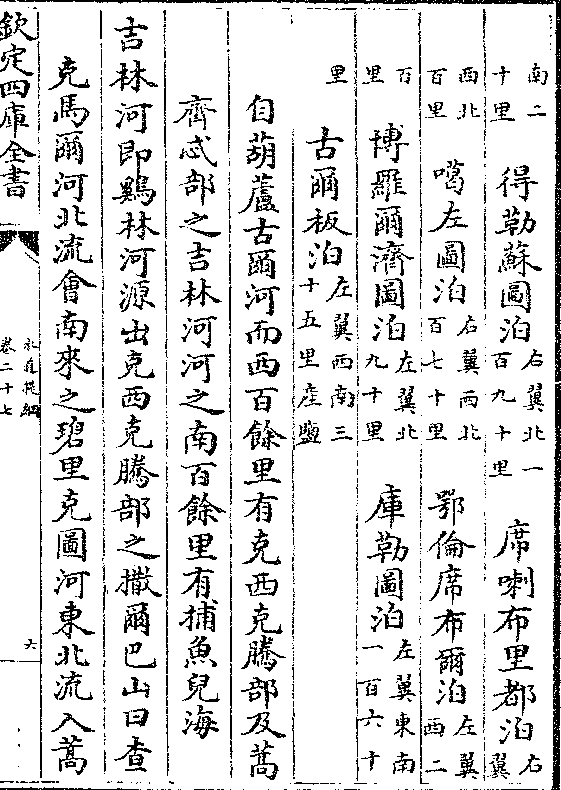 南二十里 得勒蘇圖泊右翼北一百九十里 席喇布里都泊右翼
西北百里 噶左圖泊右翼西北百七十里 鄂倫席布爾泊左翼西二
百里 博羅爾濟圖泊左翼北九十里 庫勒圖泊左翼東南一百六十
里 古爾板泊左翼西南三十五里產鹽
自葫蘆古爾河而西百餘里有克西克騰部及蒿
齊忒部之吉林河河之南百餘里有捕魚兒海
吉林河即鷄林河源出克西克騰部之撒爾巴山曰查
克馬爾河北流會南來之碧里克圖河東北流入蒿
欽定四庫全書 水道提綱 卷二十七 六